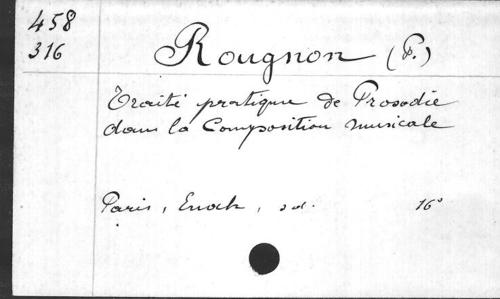 458
316
Rougnon (P.)
Traité pratique de Prosodie
dans la Composition musicale
Paris, Enoch, s d. 16°